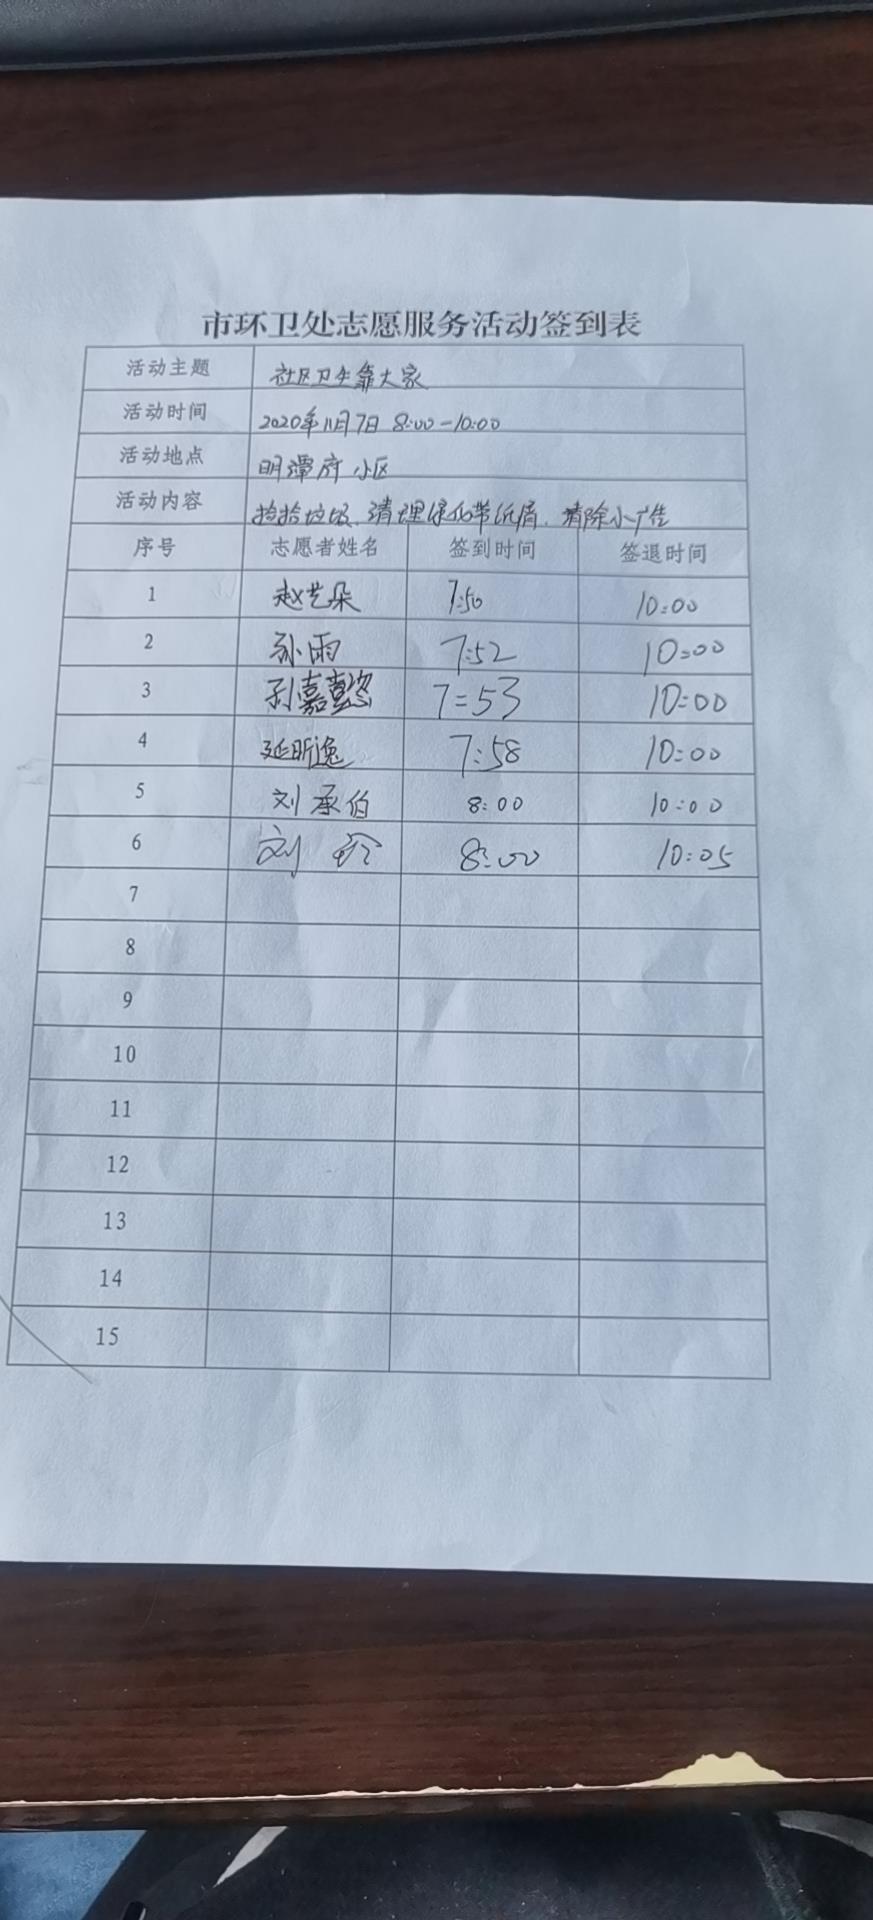 市环卫处志愿服务活动签到表
活动主题 社区卫生靠大家
活动时间 2020年11月7日 8:00-10:00
活动地点 明潭府小区
活动内容 捡拾垃圾、清理绿化带纸屑、清除小广告
序号 志愿者姓名 签到时间 签退时间
1 赵艺朵 7:50 10:00
2 孙雨 7:52 10:00
3 7:53 10:00
4 延昕逸 7:58 10:00
5 刘承伯 8:00 10:00
6 刘 8:00 10:05
7
8
9
10
11
12
13
14
15